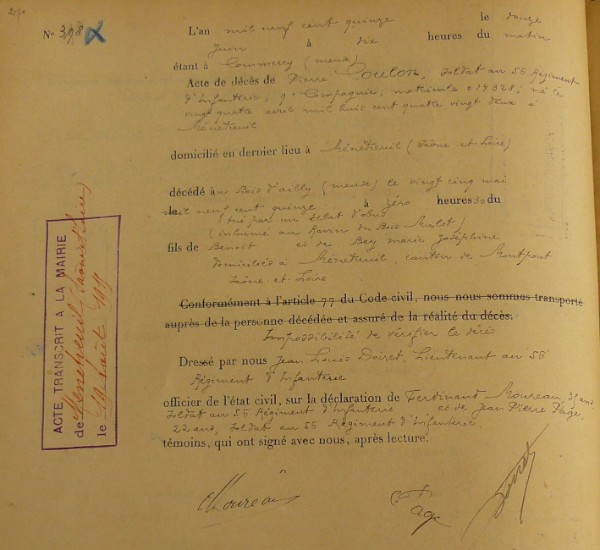 N° 398
L'an mil neuf cent quinze le douze
Juin à dix heures du matin
étant à Commercy (meuse)
Acte de décès de Pierre Coulon, soldat au 56 Régiment
d'Infanterie, 9e Compagnie, matricule 019328, né le
vingt quatre avril mil huit cent quatre vingt deux à
Ménetreuil
domicilié en dernier lieu à Ménetreuil (Saône et Loire)
décédé au Bois d'ailly (meuse) le vingt cinq mai
le mil neuf cent quinze à zéro heures 30 du
(tué par un Eclat d'obus
(inhumé au Ravin du Bois Mulot)
fils de Benoit et de Bey marie Joséphine
domiciliés à Ménetreuil, canton de Montpont
Saône et Loire
Conformément à l'article 77 du Code civil, nous nous sommes transporté
auprès de la personne décédée et assuré de la réalité du décès.
Impossibilité de vérifier le décès
Dressé par nous Jean Louis Doiret, Lieutenant au 56
Régiment d'Infanterie
officier de l'état civil, sur la déclaration de Ferdinand Moureau, ans
Soldat au 56 Régiment d'Infanterie et de Jean Pierre Page,
22 ans, Soldat au 56 Régiment d'Infanterie,
témoins, qui ont signé avec nous, après lecture.
Moureau
Page
Doiret
ACTE TRANSCRIT A LA MAIRIE
de Menetreuil (Saône & Loire)
le Août 1915